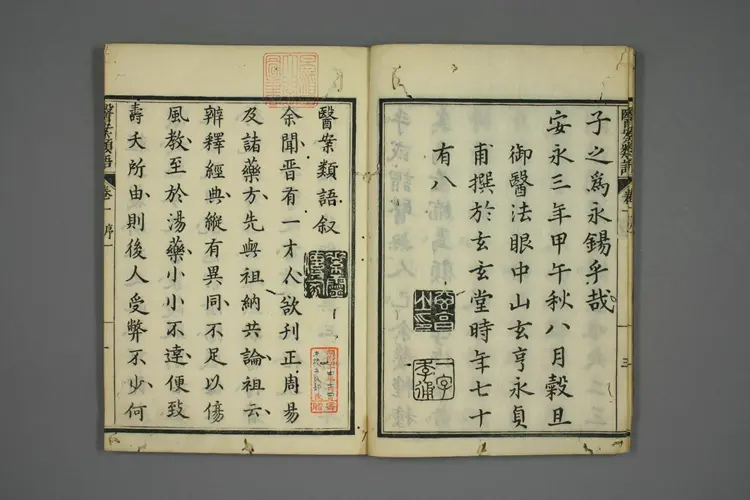 子之爲永錫乎哉
安永三年甲午秋八月穀旦
御醫法眼中山玄亨永貞
甫撰於玄玄堂時年七十
有八
一字
孝通
醫案類語
卷一
三
醫案類語叙
余聞晋有一才人欲刊正周易
及諸藥方先與祖納共論祖云
辨釋經典縱有異同不足以傷
風教至於湯藥小小不達便致
壽夭所由則後人受弊不少何
醫案類語
卷一
序
一